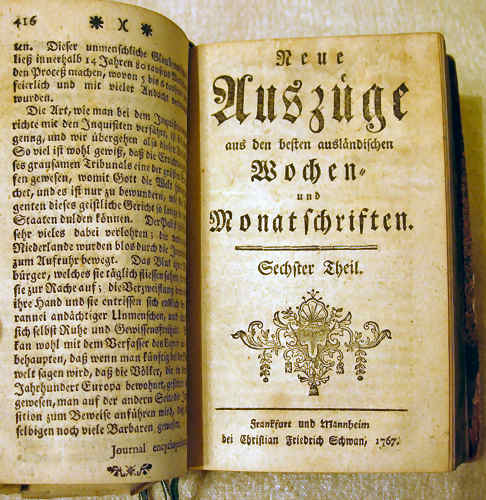 416 * X *
ten. Dieser unmenschliche Glaubens
ließ innerhalb 14 Jahren 80 tausend
den Proceß machen, wovon 5 bis 6 tausend
feierlich und mit vieler Andacht
wurden.
Die Art, wie man bey dem Inquisitions
richte mit den Inquisiten verfährt, ist
genug, und wir übergehen also diese
So viel ist wohl gewiß, daß die Errichtung
ses grausamen Tribunals eine der größten
sen gewesen, womit Gott die Welt
chet, und es ist nur zu bewundern, wie
genten dieses geistliche Gericht so lange in
Staaten dulden können. Der
sehr vieles dabei verlohren; die
Niederlande wurden blos durch die
zum Aufruhr bewegt. Das Blut
bürger, welches sie täglich fliessen sahen
sie zur Rache auf; die Verzweiflung
ihre Hand und sie entrissen sich endlich
rannei andächtiger Unmenschen, und
sich selbst Ruhe und Gewissensfreiheit.
kan wohl mit dem Verfasser des
behaupten, daß wenn man künftig bei der
welt sagen wird, daß die Völker, die in
Jahrhundert Europa bewohnet, gesittet
gewesen, man auf der andern Seite die
sition zum Beweise anführen wird, daß
selbigen noch viele Barbaren gewesen.
Journal encyclopedique
Neue
Auszüge
aus den besten ausländischen
Wochen-
und
Monatschriften.
Sechster Theil.
Frankfurt und Mannheim
bei Christian Friedrich Schwan, 1767.